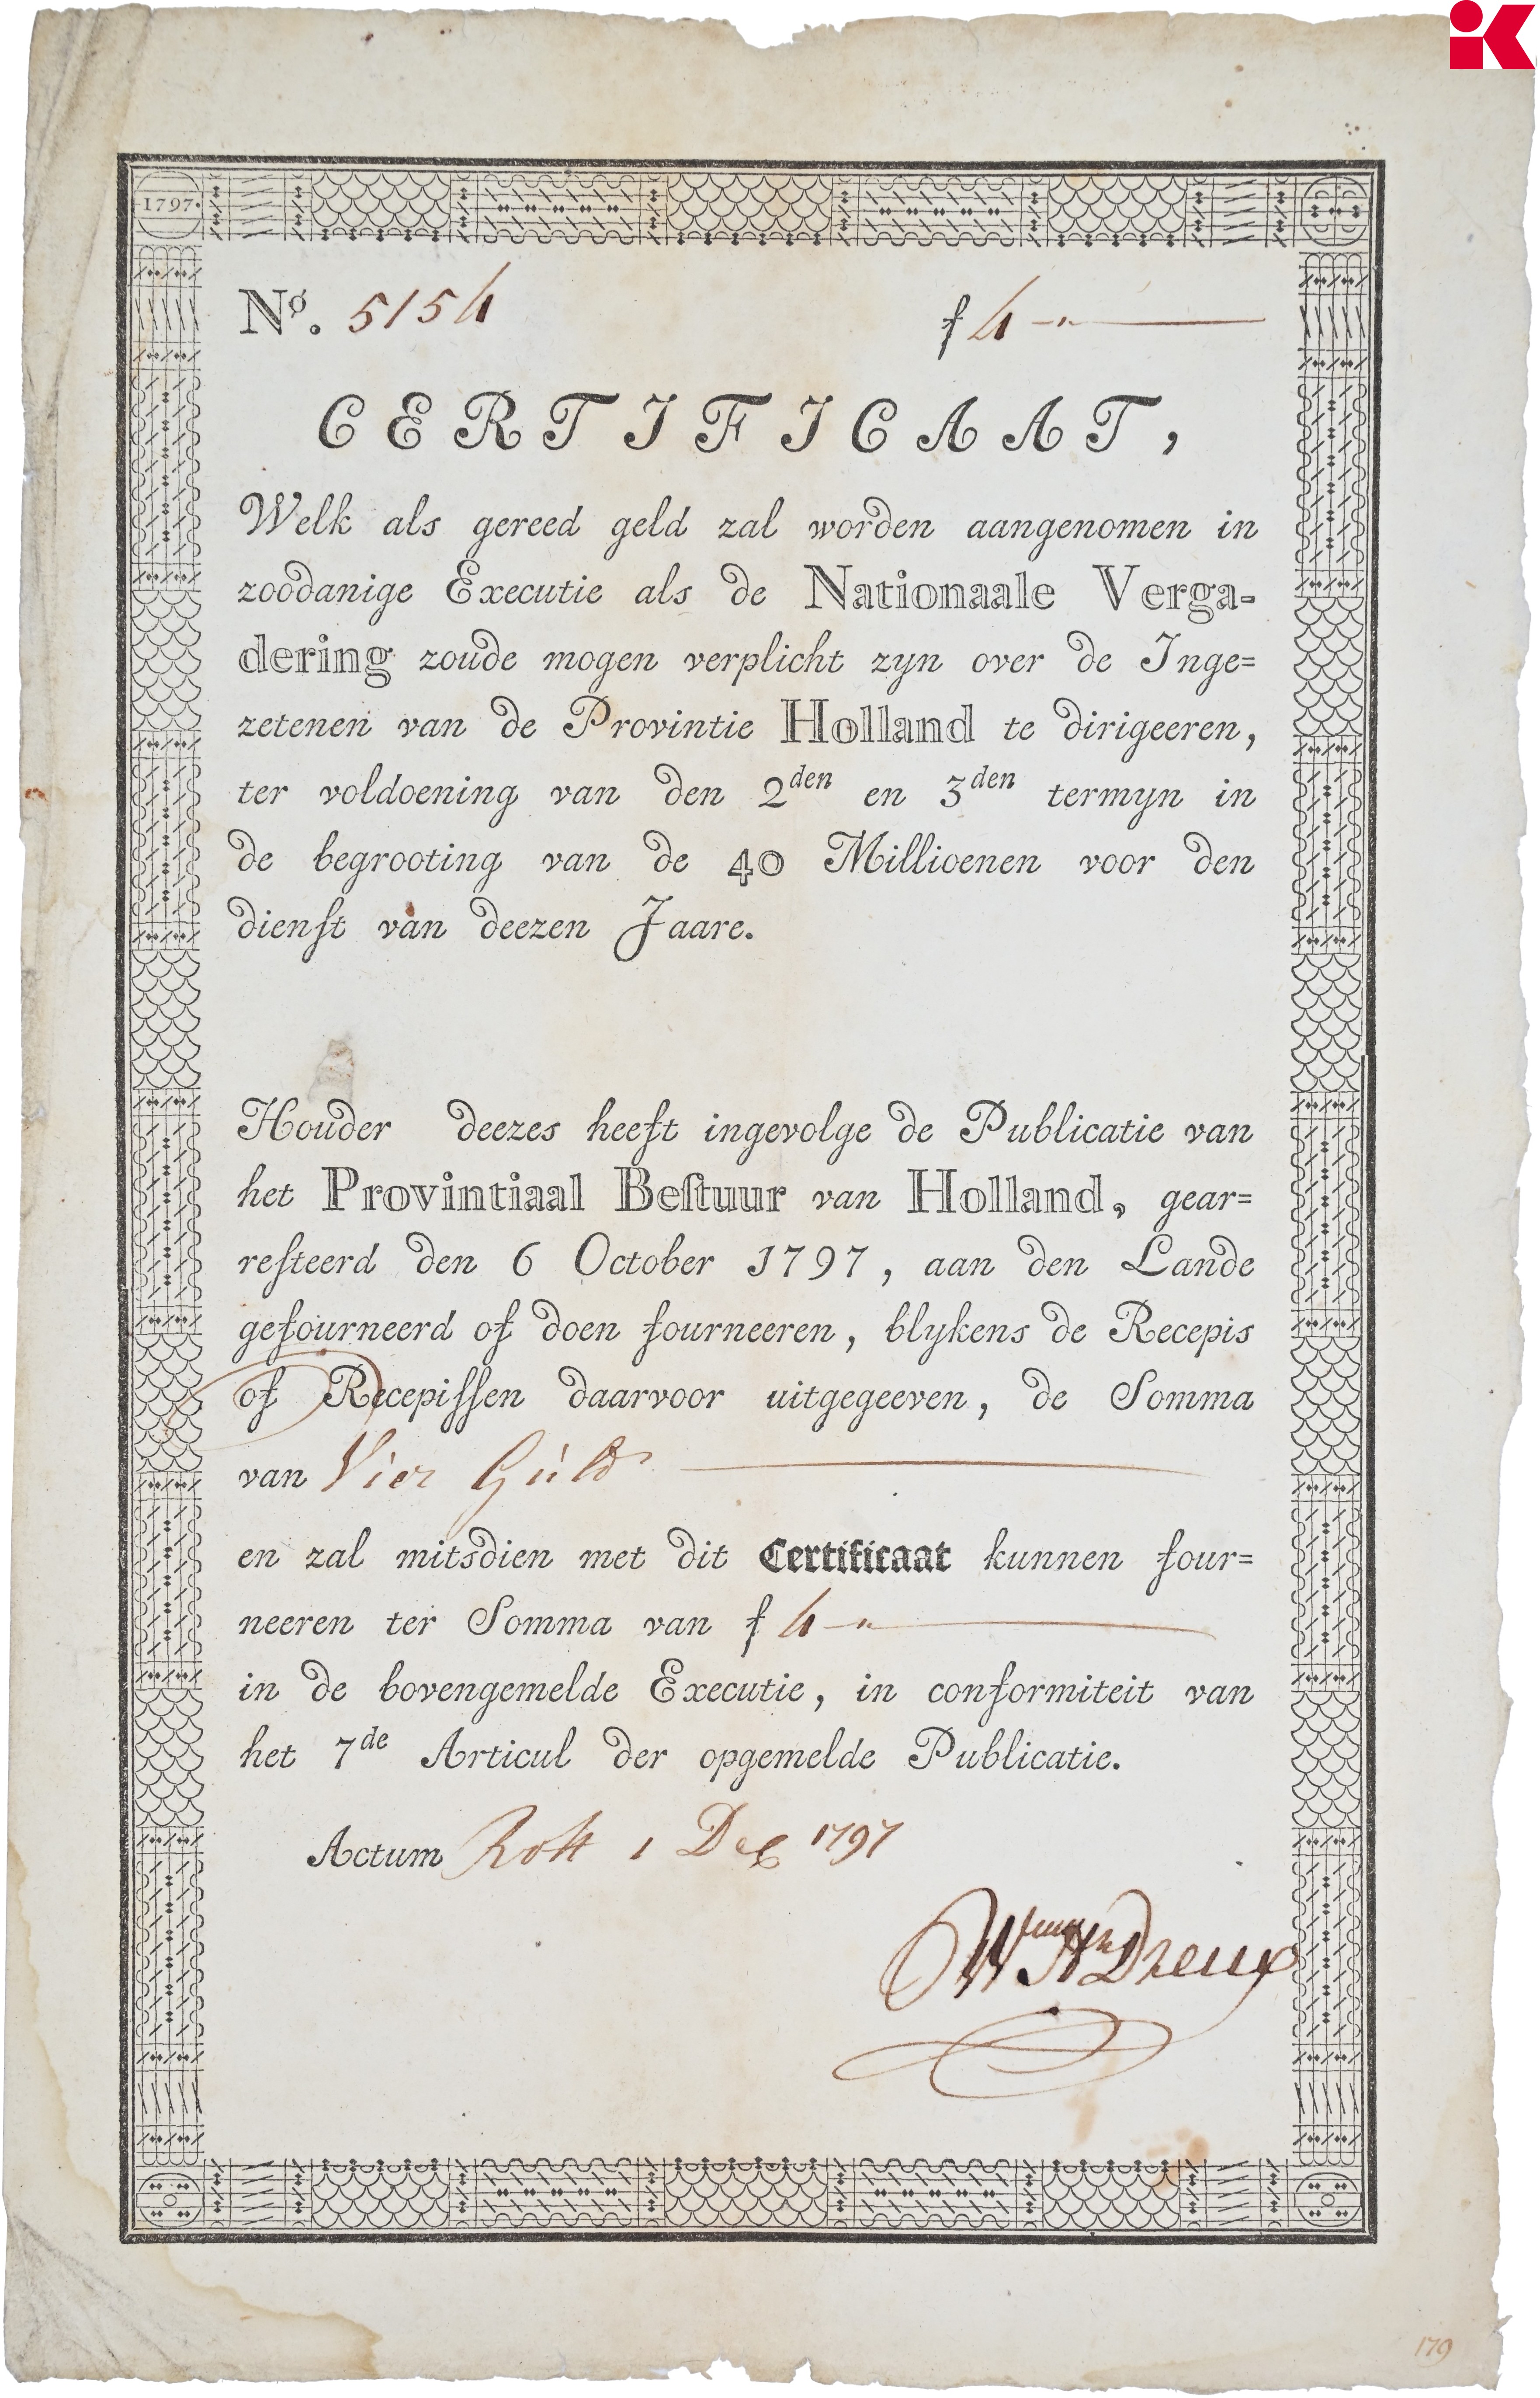 1797.
Nº. 5154 f 4 - „
CERTIFICAAT,
Welk als gereed geld zal worden aangenomen in
zoodanige Executie als de Nationaale Verga-
dering zoude mogen verplicht zyn over de Inge=
zetenen van de Provintie Holland te dirigeeren,
ter voldoening van den 2den en 3den termyn in
de begrooting van de 40 Millioenen voor den
dienſt van deezen Jaare.
Houder deezes heeft ingevolge de Publicatie van
het Provintiaal Beſtuur van Holland, gear=
reſteerd den 6 October 1797, aan den Lande
gefourneerd of doen fourneeren, blykens de Recepis
of Recepiſſen daarvoor uitgegeeven, de Somma
van Vier Guld
en zal mitsdien met dit Certificaat kunnen four=
neeren ter Somma van f 4 - „
in de bovengemelde Executie, in conformiteit van
het 7de Articul der opgemelde Publicatie.
Actum Rott 1 Dec 1797
179